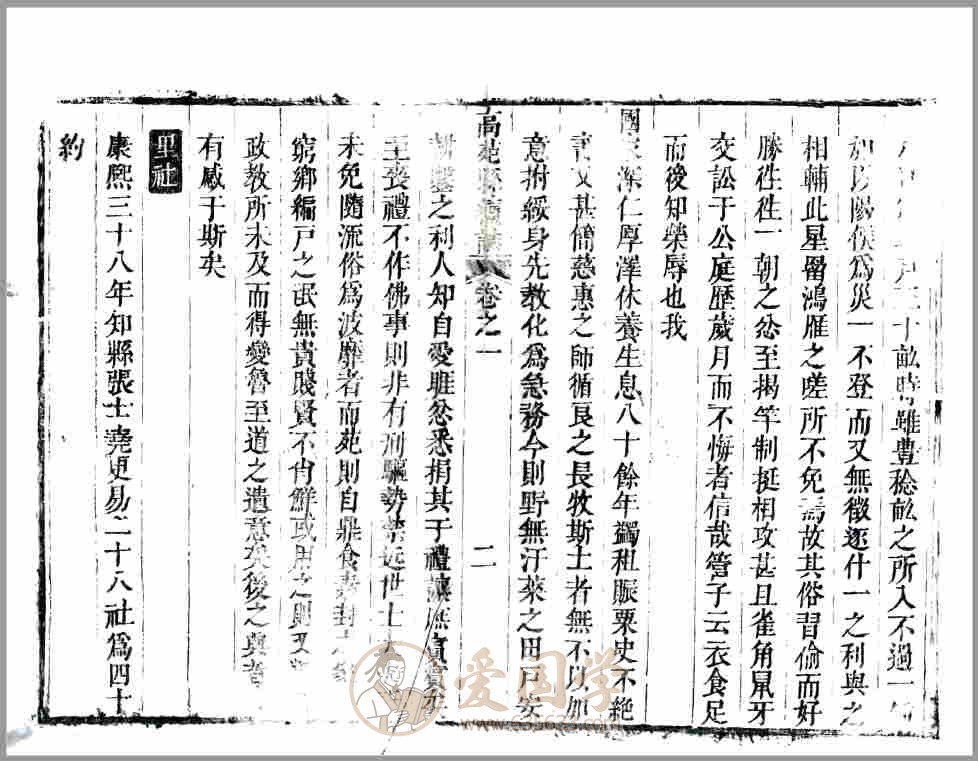 十畝時雖豊稔畝之所入不過一
加以陽侯爲災一不登而又無徵逐什一之利與之
相輔此星畱鴻雁之嗟所不免焉故其俗習偷而好
勝徃徃一朝之忿至揭竿制挺相攻甚且雀角鼠牙
交訟于公庭歷歲月而不悔者信哉管子云衣食足
而後知榮辱也我
國家深仁厚澤休養生息八十餘年蠲租賑粟史不絶
書又甚簡慈惠之師循良之長牧斯土者無不以加
意拊綏身先教化爲急務今則野無汙萊之田戸安
高苑縣
卷之一
二
耕鑿之利人知自愛睚忿悉捐其于禮讓
至喪禮不作佛事則非有刑驅勢禁近世士大
未免隨流俗爲波靡者而苑則自鼎食素封
窮鄉編戸之氓無貴賤賢不肖鮮或用之則又
政教所未及而得變魯至道之遺意矣後之與者
有感于斯矣
里社
康熙三十八年知縣張士堯更易二十八社爲四十
約
爱国学